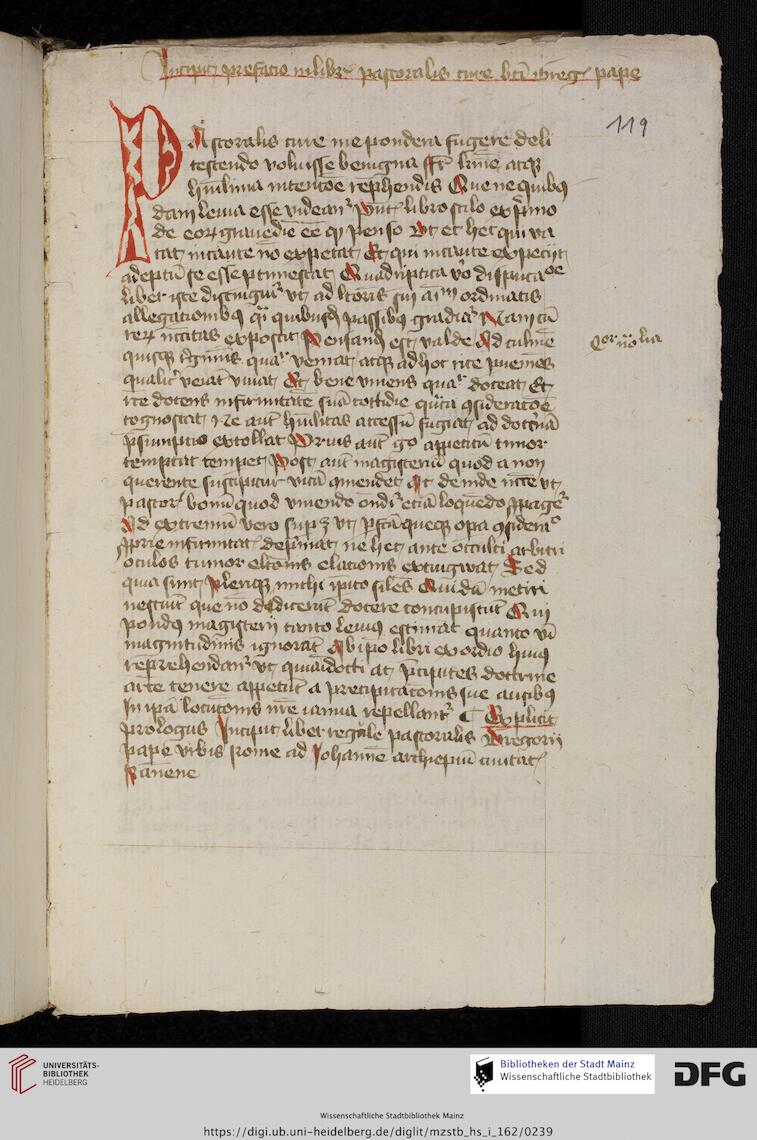 Incipit prefacio in libr̄ pastoralis cure bti Greg pape
119
PAstoralis cure me pondera fugere deli
tescendo voluisse benigna fr̄ kr̄me atqꝫ
hūilima intencōe rep̄hendis Que ne quibꝰ
dam leuia esse videant᷑ p̄nt᷑ libro stilo exp̄mo
de eoꝝ grauedīe ēe qꝫ penso Vt et hec qui va
cat incaute nō expetat Et qui incaute expeciit
adeptū se esse p̲timescat Quadriptita vo disputacōe
liber iste distinguit᷑ vt ad lc̄oris sui aīm ordinatis
allegationibꝰ q̄i quibusdā passibꝰ gradiat᷑ Nam cū
reꝝ nc̄citas exposcit Pensandū est valde Ad culmē
quisqꝫ regiminis qualit᷑ veniat atqꝫ ad hoc rite p̲ueniēs
qualit᷑ viuat Et bene viuens qualit᷑ doceat Et
rc̄e docens infirmitatē suā cottidie quāta ꝯsideracōe
cognoscat Ne aut hūilitas accessū fugiat ad doctrīā
p̄sumptio extollat Prius aut᷑ go appetitū timor
temperet Post aut magisteriū quod a non
querente suscipitur vitā ꝯmendet Ac deinde nc̄ce vt
pastor᷑ bonū quod viuendo ondit᷑ eciā loquēdo ꝓpaget᷑
Ad extremū vero sup̲ꝫ vt p̲fc̄a queqꝫ opa ꝯsiderac̄o
ꝓprie infirmitat᷑ dep̄mat ne hec ante occulti arbitri
oculos tumor elacionis extingwat Sed
quia sunt pleriqꝫ michi īpito sīles Qui dū metiri
nesciūt que nō didicerūt docere concupiscūt Qui
pondꝰ magisterij tanto leuiꝰ estimāt quanto vim
magnitudinis ignorāt Ab ip̄o libri exordio huiꝰ
reprehendant᷑ vt quia indocti ac p̄cipites doctrine
arcē tenere appetūt a precipitacōnis sue ausibꝰ
In ip̄a locucōnis nr̄e ianua repellant᷑ ¶ Explicit
prologus Incipit liber regule pastoralis Gregorij
pape vrbis Rome ad Johannē archiepm̄ ciuitat᷑
Rauenne
UNIVERSITÄTS-
BIBLIOTHEK
HEIDELBERG
Bibliotheken der Stadt Mainz
Wissenschaftliche Stadtbibliothek
DFG
Wissenschaftliche Stadtbibliothek Mainz
https://digi.ub.uni-heidelberg.de/diglit/mzstb_hs_i_162/0239